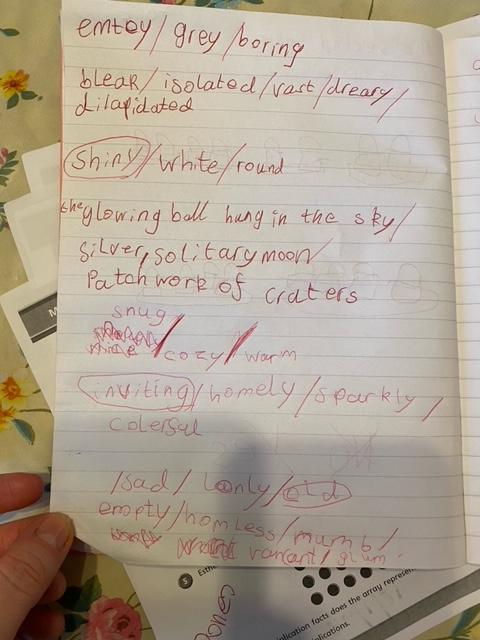 emtey/grey/boring
bleak/isolated/vast/dreary/
dilapidated
shiny/white/round
the glowing ball hung in the sky/
silver, solitary moon/
Patchwork of craters
snug
/cozy/warm
inviting/homely/sparkly/
colerful
/sad/lonly/old
empty/homless/mumb/
varcant/glum.
5 Esthe
lication facts does the array represen
plications.